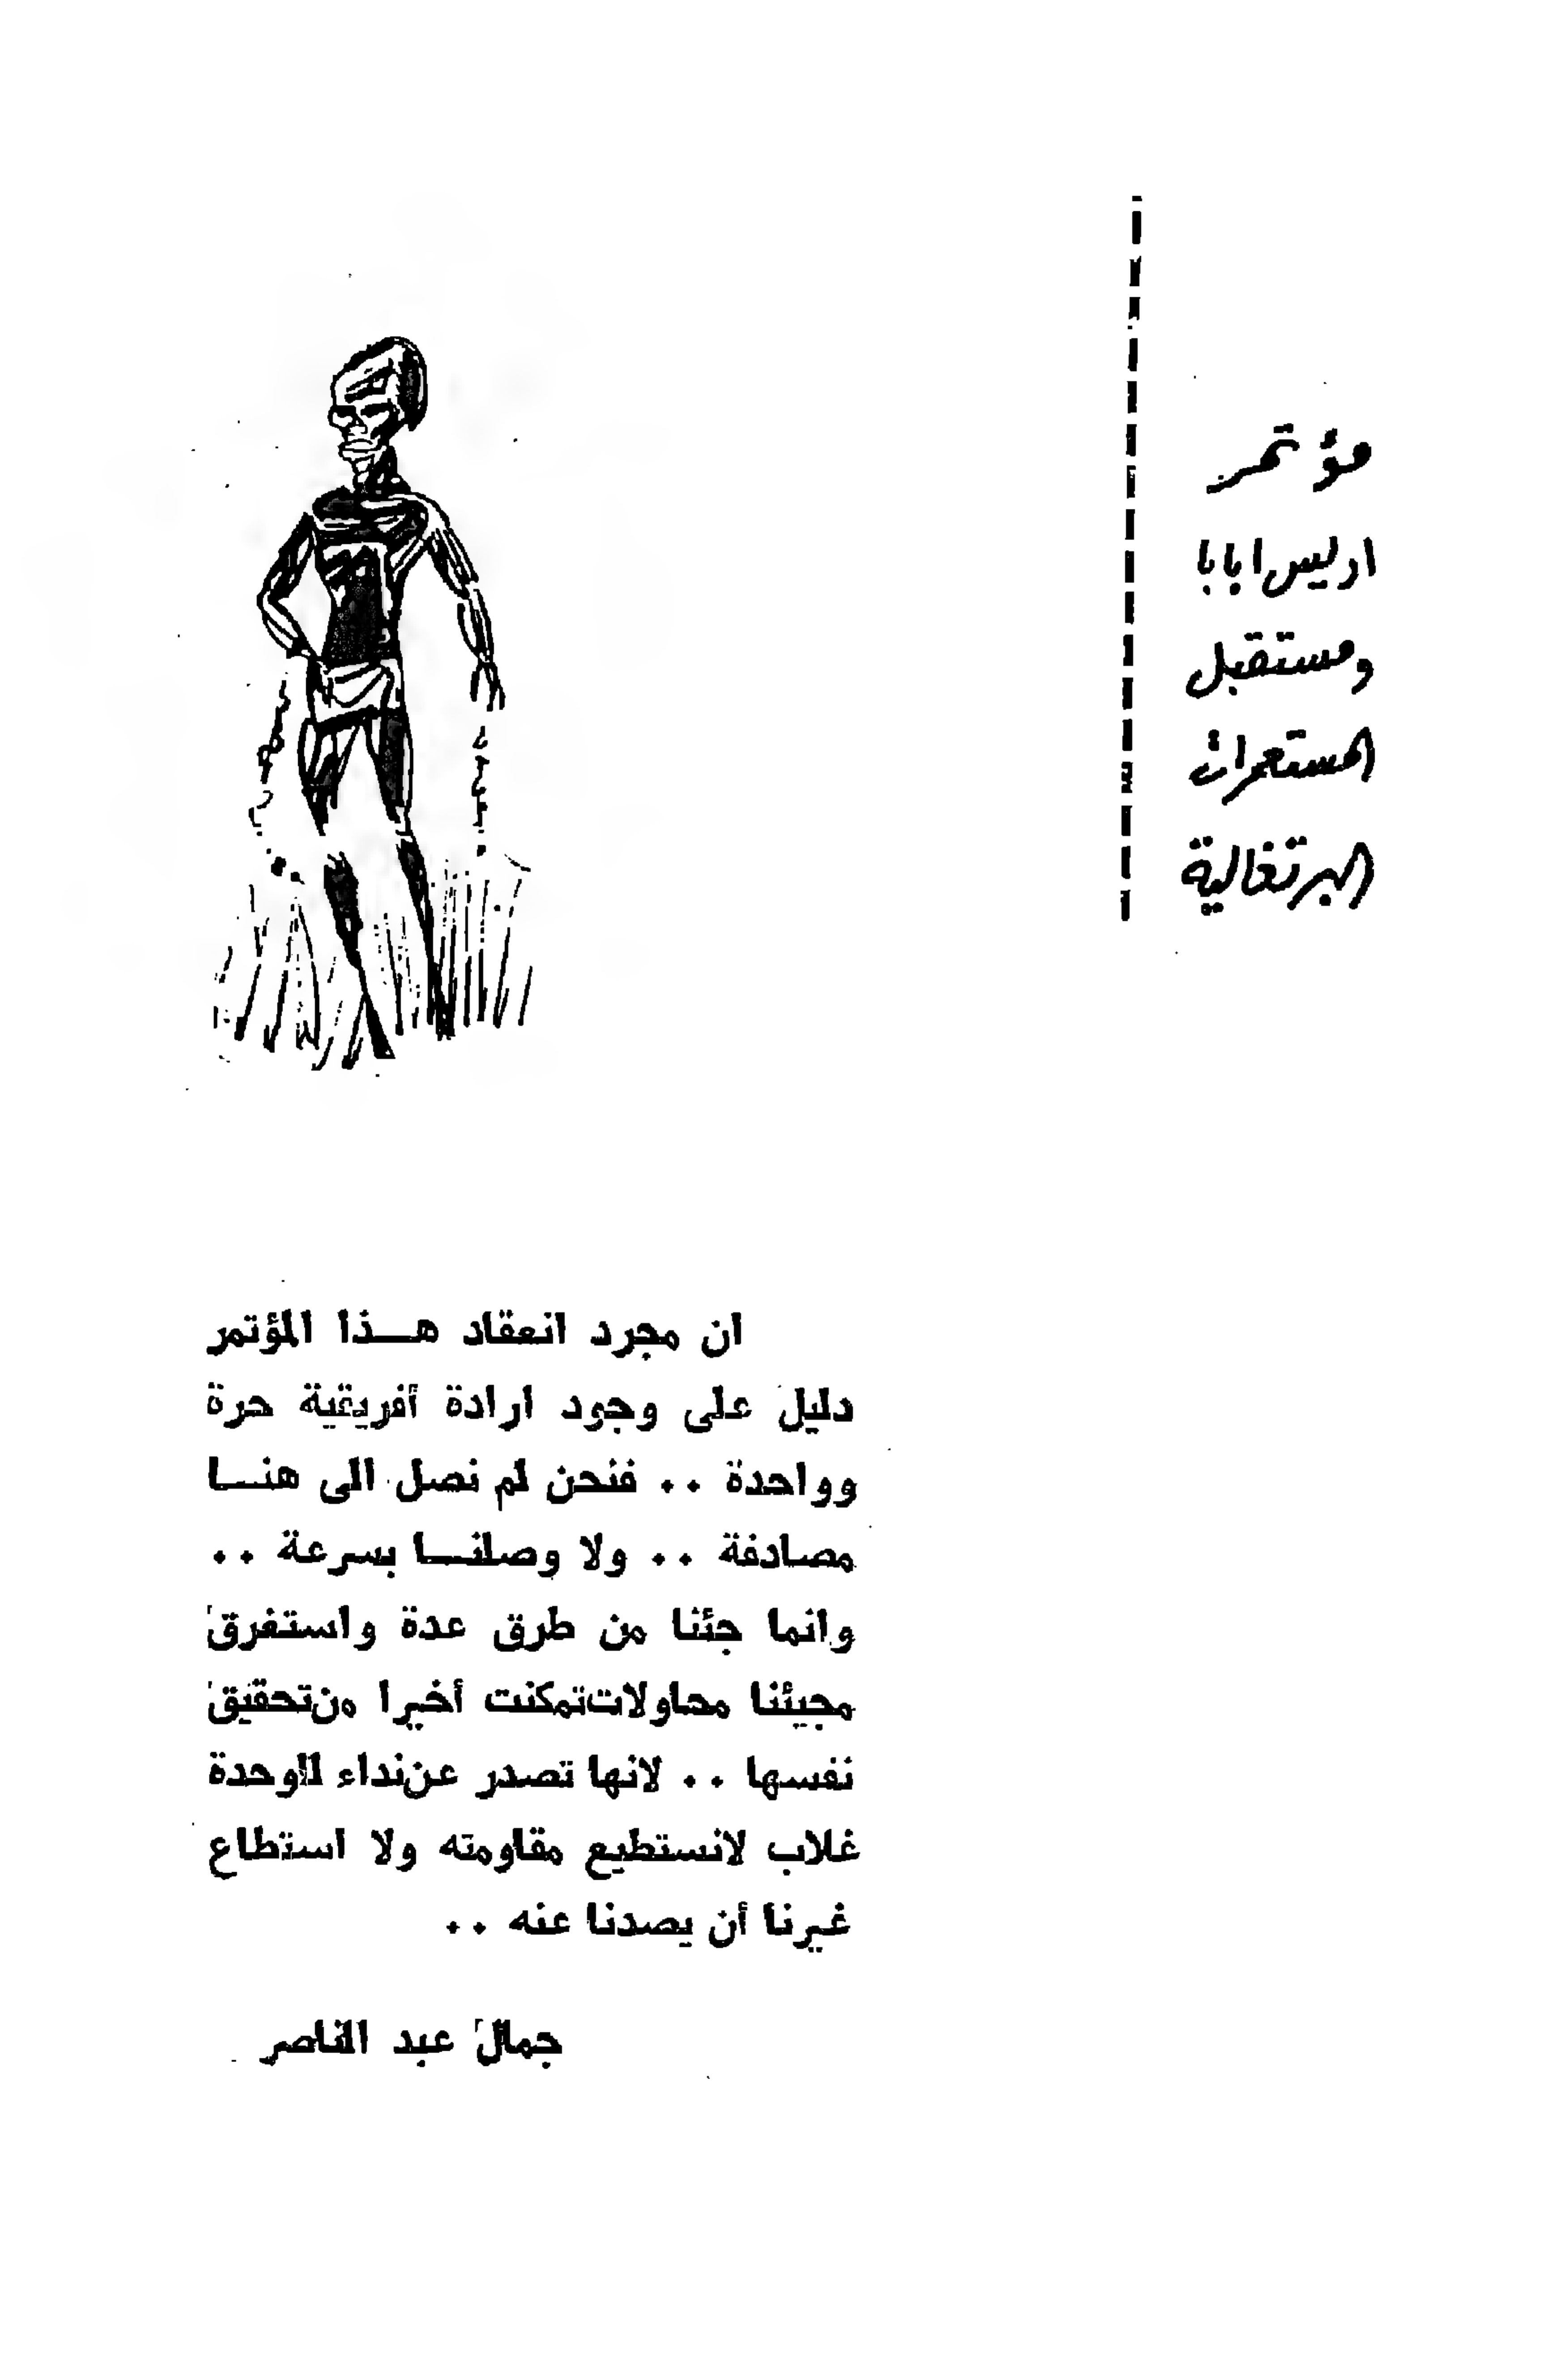 مؤتمر
اديس ابابا
ومستقبل
المستعمرات
البرتغالية
ان مجرد انعقاد هـــذا المؤتمر
دليل على وجود ارادة أفريقية حرة
وواحدة .. فنحن لم نصل الى هنـــا
مصادفة .. ولا وصلنـــا بسرعة ..
وانما جئنا من طرق عدة واستغرق
مجيئنا محاولات تمكنت أخيرا من تحقيق
نفسها .. لانها تصدر عن نداء للوحدة
غلاب لانستطيع مقاومته ولا استطاع
غيرنا أن يصدنا عنه ..
جمال عبد الناصر